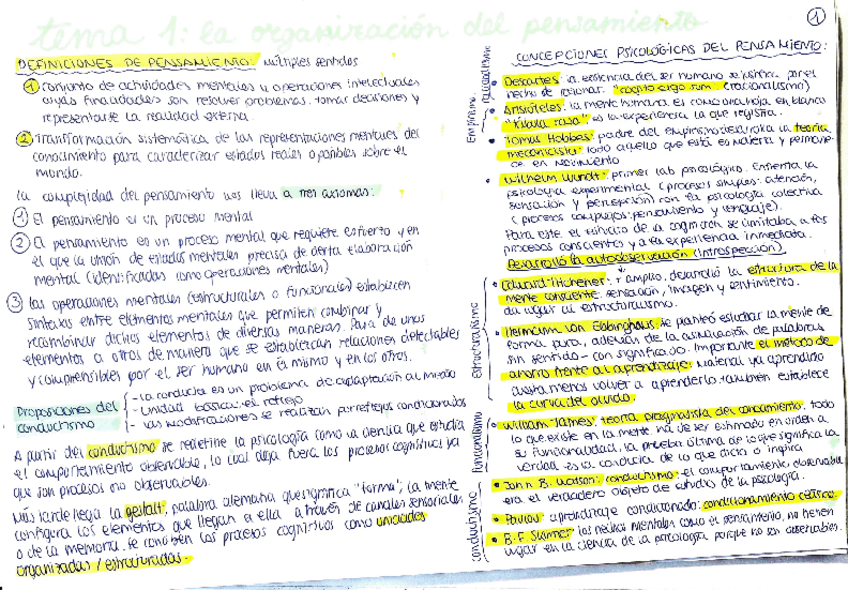 tema 1: la organización del pensamiento
1
DEFINICIONES DE PENSAMIENTO: múltiples sentidos
1 conjunto de actividades mentales u operaciones intelectuales
cuyas finalidades son resolver problemas, tomar decisiones y
representarse la realidad externa.
2 Transformación sistemática de las representaciones mentales del
conocimiento para caracterizar estados reales o posibles sobre el
mundo.
La complejidad del pensamiento nos lleva a tres axiomas:
1 El pensamiento es un proceso mental
2 El pensamiento es un proceso mental que requiere esfuerzo y en
el que la unión de estados mentales precisa de cierta elaboración
mental (identificadas como operaciones mentales)
3 las operaciones mentales (estructurales o funcionales) establecen
sintaxis entre elementos mentales que permiten combinar y
recombinar dichos elementos de diversas maneras. Pasa de unos
elementos a otros de manera que se establezcan relaciones detectables
y comprensibles por el ser humano en él mismo y en los otros.
Proposiciones del conductismo
- la conducta es un problema de adaptación al medio
- unidad básica: el reflejo
- las modificaciones se realizan por reflejos condicionados
A partir del conductismo se redefine la psicología como la ciencia que estudia
el comportamiento observable, lo cual deja fuera los procesos cognitivos ya
que son procesos no observables.
Más tarde llega la gestalt, palabra alemana que significa "forma"; la mente
configura los elementos que llegan a ella a través de canales sensoriales
o de la memoria. Se conciben los procesos cognitivos como unidades
organizadas / estructuradas.
CONCEPCIONES PSICOLÓGICAS DEL PENSAMIENTO:
racionalismo
• Descartes: la existencia del ser humano se justifica por el
hecho de razonar. "cogito ergo sum" (racionalismo)
Empirismo
• Aristóteles: la mente humana es como una hoja en blanco
"tábula rasa" es la experiencia la que registra.
• Tomas Hobbes: padre del empirismo desarrolla la teoría
mecanicista: todo aquello que está es materia y permane-
ce en movimiento
• Wilhelm Wundt: primer lab psicológico. Enfrenta la
psicología experimental (procesos simples: atención,
sensación y percepción) con la psicología colectiva
(procesos complejos: pensamiento y lenguaje).
Para este el estudio de la cognición se limitaba a los
procesos conscientes y a la experiencia inmediata.
Desarrolló la autoobservación (introspección)
estructuralismo
• Edward Titchener: + amplio, desarrolló la estructura de la
mente consciente: sensación, imagen y sentimiento.
da lugar al estructuralismo.
• Hermann von Ebbinghaus: se planteó estudiar la mente de
forma pura, además de la asimilación de palabras
sin sentido - con significado. Importante el método de
ahorro frente al aprendizaje: material ya aprendido
cuesta menos volver a aprenderlo. también establece
la curva del olvido.
funcionalismo
• William James: teoría pragmatista del conocimiento: todo
lo que existe en la mente ha de ser estimado en orden a
su funcionalidad, la prueba última de lo que significa la
verdad es la conducta de lo que dicta o inspira
conductismo
• John B. Watson: conductismo: el comportamiento observable
era el verdadero objeto de estudio de la psicología.
• Pavlov: aprendizaje condicionado: condicionamiento clásico.
• B.F. Skinner: los hechos mentales como el pensamiento, no tienen
lugar en la ciencia de la psicología porque no son observables.